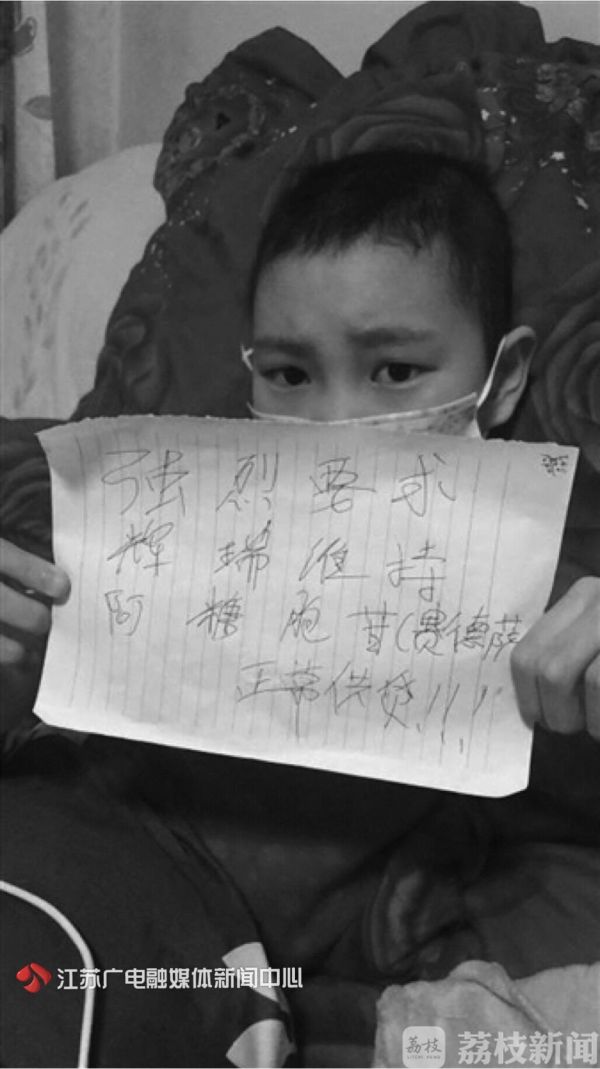 强烈要求
辉瑞维持
阿糖胞苷(赛德萨
正常供货!!!
江苏广电融媒体新闻中心
荔枝
LITCHI NEWS
荔枝新闻